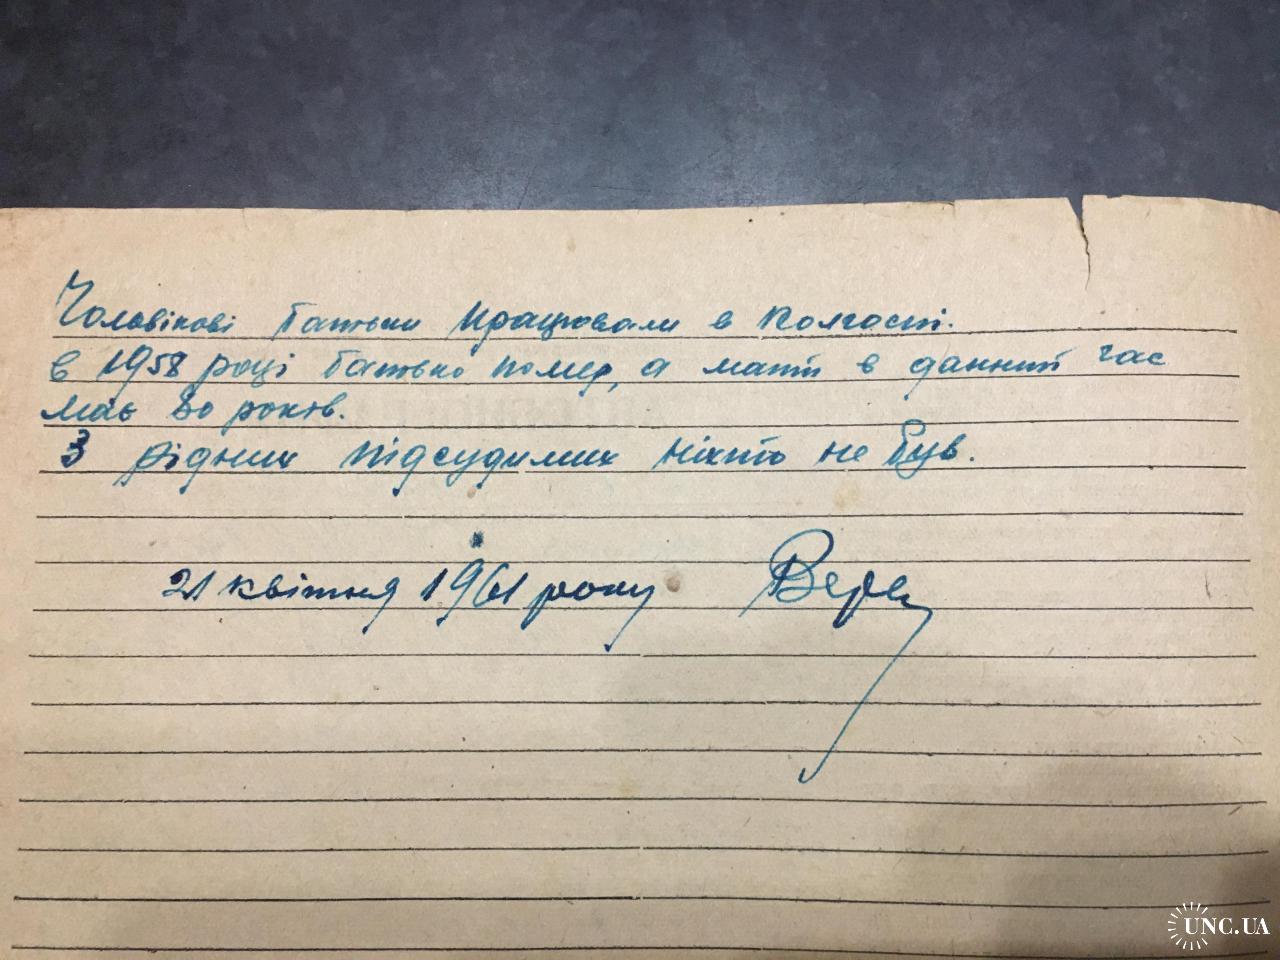 Чоловікові батьки працювали в колгоспі.
в 1958 році батько помер, а мати в данний час
має 80 років.
З рідних підсудимих ніхто не був.
21 квітня 1961 року
UNC.UA